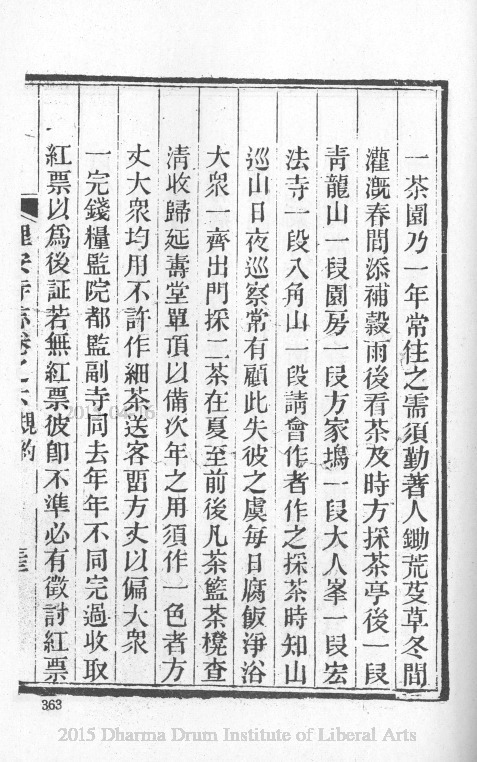 一茶園乃一年常住之需須勤著人鋤荒芟草冬間
灌漑春間添補穀雨後看茶及時方採茶亭後一段
靑龍山一段園房一段方家塢一段大人峯一段宏
法寺一段八角山一段請會作者作之採茶時知山
巡山日夜巡察常有顧此失彼之虞每日腐飯淨浴
大衆一齊出門採二茶在夏至前後凡茶籃茶櫈查
淸收歸延壽堂單頂以備次年之用須作一色者方
丈大衆均用不許作細茶送客畱方丈以偏大衆
一完錢糧監院都監副寺同去年年不同完過收取
紅票以爲後証若無紅票彼卽不準必有徵討紅票
理安寺志卷之六規約
363
2015 Dharma Drum Institute of Liberal Arts